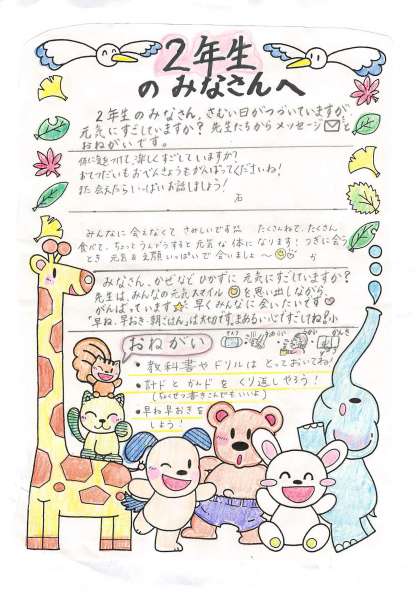 2年生
のみなさんへ
2年生のみなさん、さむい日がつづいていますが、
元気にすごしていますか？先生たちからメッセージと
おねがいです。
体に気をつけて、楽しくすごしていますか？
おてつだいもおべんきょうもがんばってくださいね！
また会えたらいっぱいお話しましょう！
石
みんなに会えなくてさみしいです。たくさんねて、たくさん
食べて、ちょっとうんどうすると元気な体になります！つぎに会う
とき元気な笑顔いっぱいで会いましょ〜
みなさん、かぜなどひかずに元気にすごしていますか？
先生は、みんなの元気スマイルを思い出しながら
がんばっています。早くみんなに会いたいです
「早ね、早おき、朝ごはん」は大切です。
おねがい
・教科書やドリルはとっておいてね！
・計ドとかんドをくり返しやろう！
(ちょくせつ書きこんでもいいよ)
・早ね早おきを
しよう！